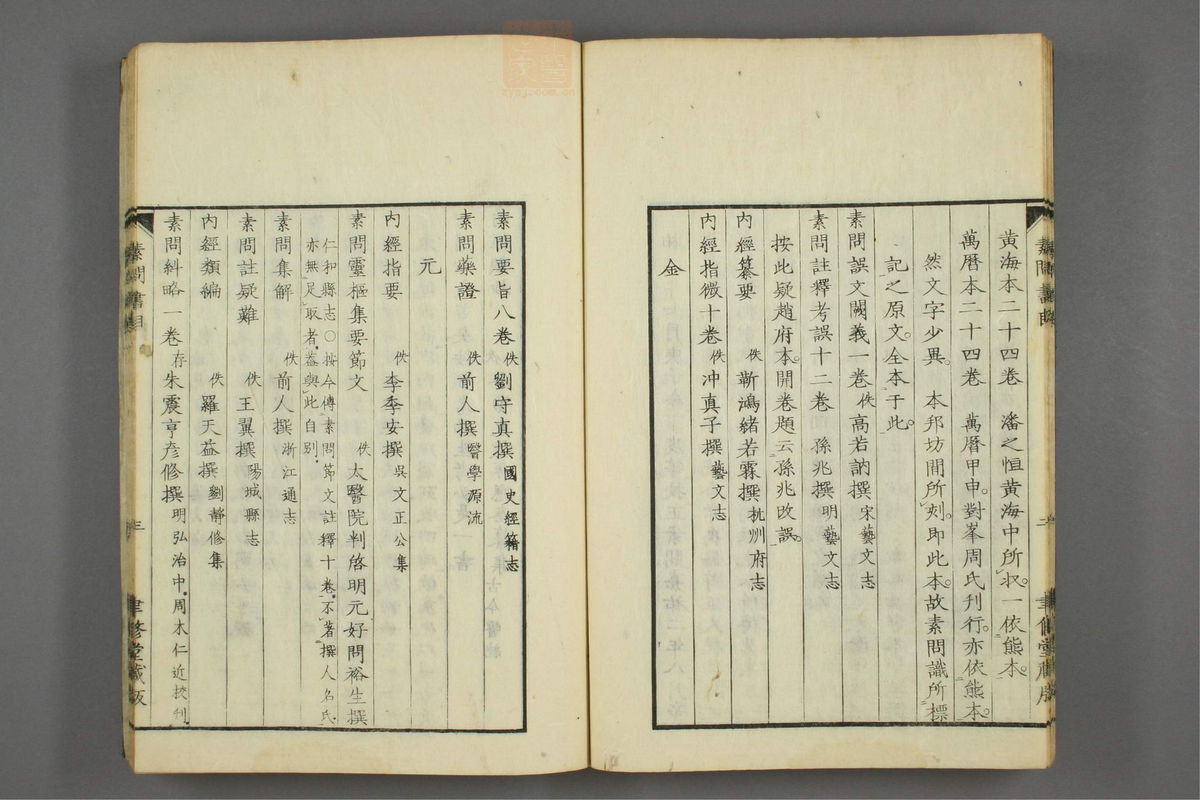 黃海本二十四卷　潘之恒黃海中所収一依熊本
萬曆本二十四卷　萬曆甲申對峯周氏刊行亦依熊本
然文字少異　本邦坊間所刻即此本故素問識所標
記之原文全本于此
素問誤文闕義一卷佚高若訥撰宋藝文志
素問註釋考誤十二卷　孫兆撰明藝文志
按此疑趙府本開卷題云孫兆改誤
內經纂要　佚靳鴻緒若霖撰杭州府志
內經指微十卷佚冲真子撰藝文志
金
素問要旨八卷佚劉守真撰國史經籍志
素問藥證　佚前人撰醫學源流
元
內經指要　佚李季安撰吳文正公集
素問靈樞集要節文　佚太醫院判啓明元好問裕生撰
仁和縣志〇按今傳素問節文註釋十卷不著撰人名氏
亦無足取者蓋與此自別
素問集解　佚前人撰浙江通志
素問註疑難　佚王翼撰陽城縣志
內經類編　佚羅天益撰劉靜修集
素問糾略一卷存朱震亨彥修撰明弘治中周木仁近挍刊
素問書目　三　聿修堂藏版